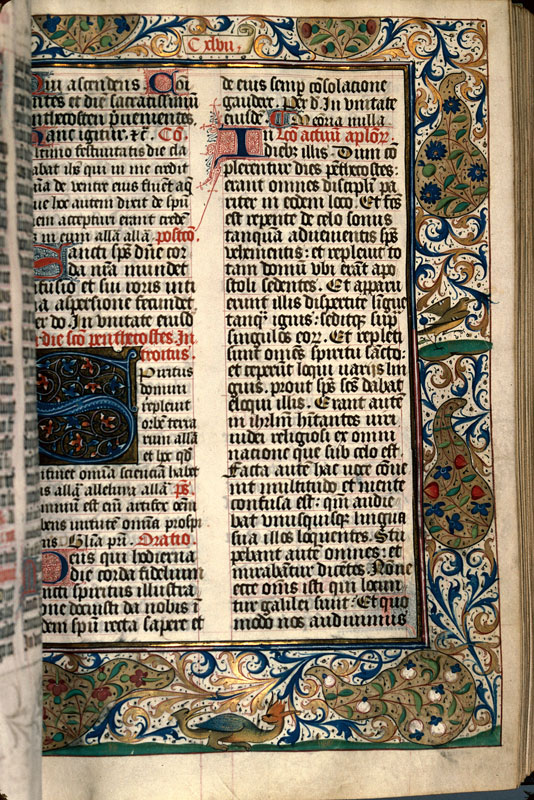 C xlvii.
Qui ascendens. Coi
ntes et die sacratissimū
ntħecosten p̄uenientes.
Hanc igitur. ⁊c̄. Co.
ltimo festiuitatis die
abat ih̄s qui in me credit
de ventre eius
hec autem dixit de spū
em accepturi erant
in eum allā allā. postcō.
Sancti sp̄s dn̄e cor
da n̄ra mundet
fusio et sui roris inti
a aspersione fecundet
per do. In vnitate eiusd
die sc̄o penthecostes. In
troitus.
Spiritus
domini
repleuit
orbē terra
rum allā
et hoc qd̄
ntinet omīa scienciā habet
is allā allelura allā. ps̄.
bens uirtutē
ns. Glīa pr̄i. Oratio.
Deus qui hodierna
die corda fidelium
ncti spiritus illustra
one docuisti da nobis ī
dem spū recta sapere et
de eius semp cōsolacione
gaudere. Per d̄. In vnitate
eiusdē. Secōia nulla
In Lcō actuū aplor̄.
diebȝ illis. Dum cō
plerentur dies pēthecostes:
erant omnes discipli pa
riter in eodem loco. Et fc̄s
est repente de celo sonus
tanquā aduenientis sp̄s
vehementis: et repleuit to
tam domū vbi erāt apo
stoli sedentes. Et apparu
erunt illis dispertite ligue
tanqȝ ignis: seditqȝ sup
singulos eor̄. Et repleti
sunt om̄es spiritu sācto:
et ceperūt loqui uarijs lin
guis. prout sp̄s sc̄s dabat
eloqui illis. Erant autē
in ihrl̄m hītantes uiri
iudei religiosi ex omni
nacione que sub celo est.
Facta autē hac uoce cōue
nit multitudo et mente
confusa est: qm̄ audie
bat vnusquisque lingua
sua illos loquentes. Stu
pebant autē omnes: et
mirabātur dicētes. Nōne
ecce omīs isti qui locun
tur galilei sunt: Et quo
modo nos audiuimus